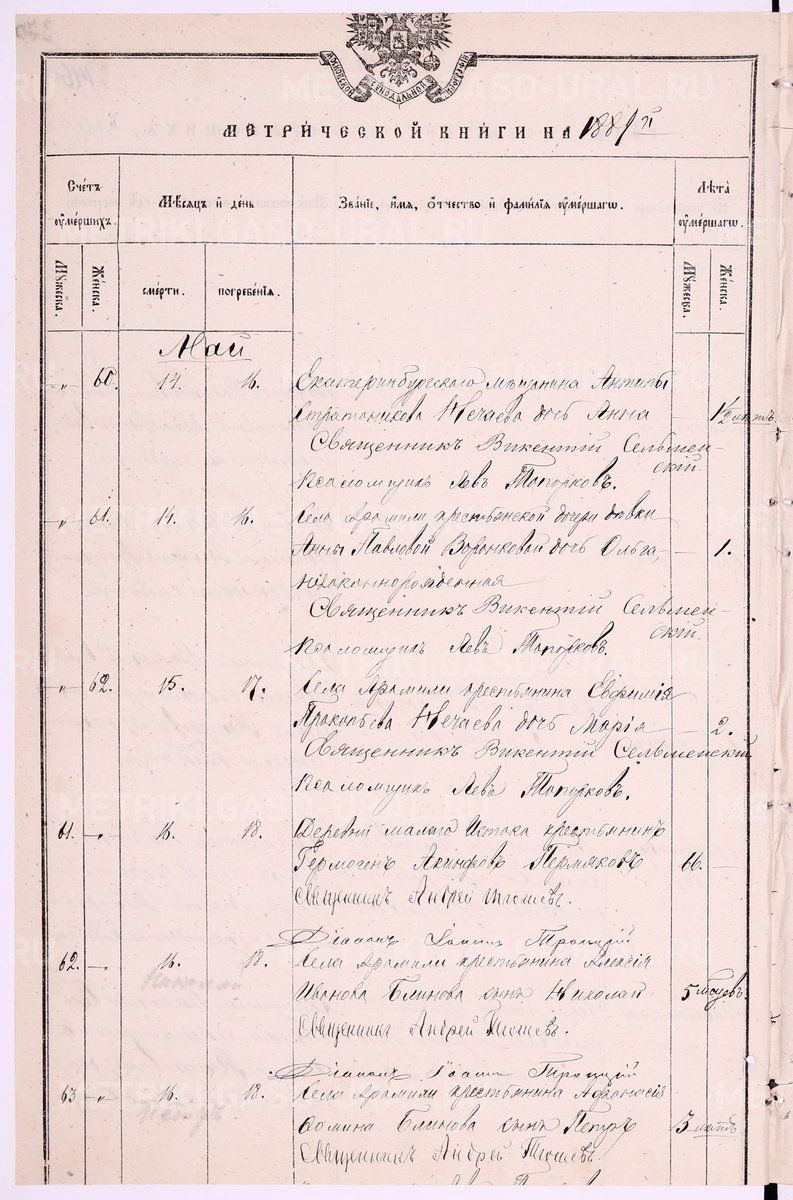 МОСКОВСКОЙ СѴНОДАЛЬНОЙ ТИПОГРАФІИ
МЕТРИ́ЧЕСКОЙ КНИ́ГИ НА 1881й
Сче́тъ ᲂу҆ме́ршихъ.
Мѣ́сяцъ и҆ де́нь
Зва́нїе, и҆́мя, ѻ҆́тчество и҆ фами́лїя ᲂу҆ме́ршагѡ.
Лѣ́та ᲂу҆ме́ршагѡ.
Мꙋ́жеска.
Же́нска.
сме́рти.
погребе́нїя.
Мꙋ́жеска.
Же́нска.
Май
" 60. 14. 16. Екатеринбургскаго мѣщанина Антипы
Стратоникова Нечаева дочь Анна — 1½
Священникъ Викентій Сельменскій
Псаломщикъ Левъ Топорковъ.
" 61. 14. 16. Села Арамили крестьянской дочери дѣвки
Анны Павловой Воронковой дочь Ольга, — 1.
незаконнорожденная
Священникъ Викентій Сельменскій.
Псаломщикъ Левъ Топорковъ.
" 62. 15. 17. Села Арамили крестьянина Евфимія
Прокопьева Нечаева дочь Марія — 2.
Священникъ Викентій Сельменскій
Псаломщикъ Левъ Топорковъ.
61. " 16. 18. Деревни малаго Истока крестьянинъ
Гермогенъ Акинфовъ Пермяковъ 66. —
Священникъ Андрей
Діаконъ Іоаннъ Троицкій
62. — 16. 18. Села Арамили крестьянина Алексія
Иванова Блинова сынъ Николай 5 месяцевъ.
Священникъ Андрей
Діаконъ Іоаннъ Троицкій
63 " 16. 18. Села Арамили крестьянина Афанасія
Фомина Блинова сынъ Петръ 3
Священникъ Андрей